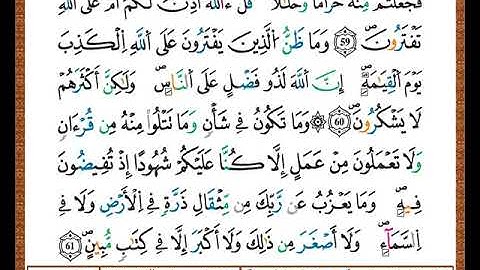 فَجَعَلْتُم مِّنْهُ حَرَامًا وَحَلَٰلًا قُلْ ءَآللَّهُ أَذِنَ لَكُمْ أَمْ عَلَى ٱللَّهِ
تَفْتَرُونَ ٥٩ وَمَا ظَنُّ ٱلَّذِينَ يَفْتَرُونَ عَلَى ٱللَّهِ ٱلْكَذِبَ
يَوْمَ ٱلْقِيَٰمَةِ إِنَّ ٱللَّهَ لَذُو فَضْلٍ عَلَى ٱلنَّاسِ وَلَٰكِنَّ أَكْثَرَهُمْ
لَا يَشْكُرُونَ ٦٠ ۞ وَمَا تَكُونُ فِى شَأْنٍ وَمَا تَتْلُوا۟ مِنْهُ مِن قُرْءَانٍ
وَلَا تَعْمَلُونَ مِنْ عَمَلٍ إِلَّا كُنَّا عَلَيْكُمْ شُهُودًا إِذْ تُفِيضُونَ
فِيهِ وَمَا يَعْزُبُ عَن رَّبِّكَ مِن مِّثْقَالِ ذَرَّةٍ فِى ٱلْأَرْضِ وَلَا فِى
ٱلسَّمَآءِ وَلَآ أَصْغَرَ مِن ذَٰلِكَ وَلَآ أَكْبَرَ إِلَّا فِى كِتَٰبٍ مُّبِينٍ ٦١